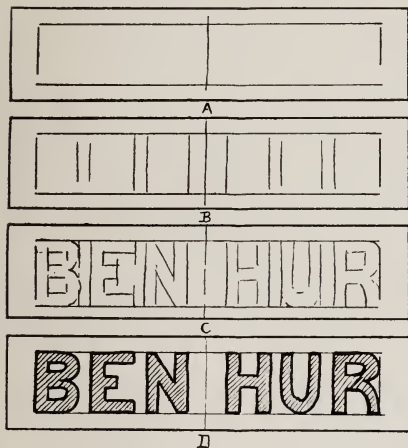 A
B
BEN HUR
C
BEN HUR
D